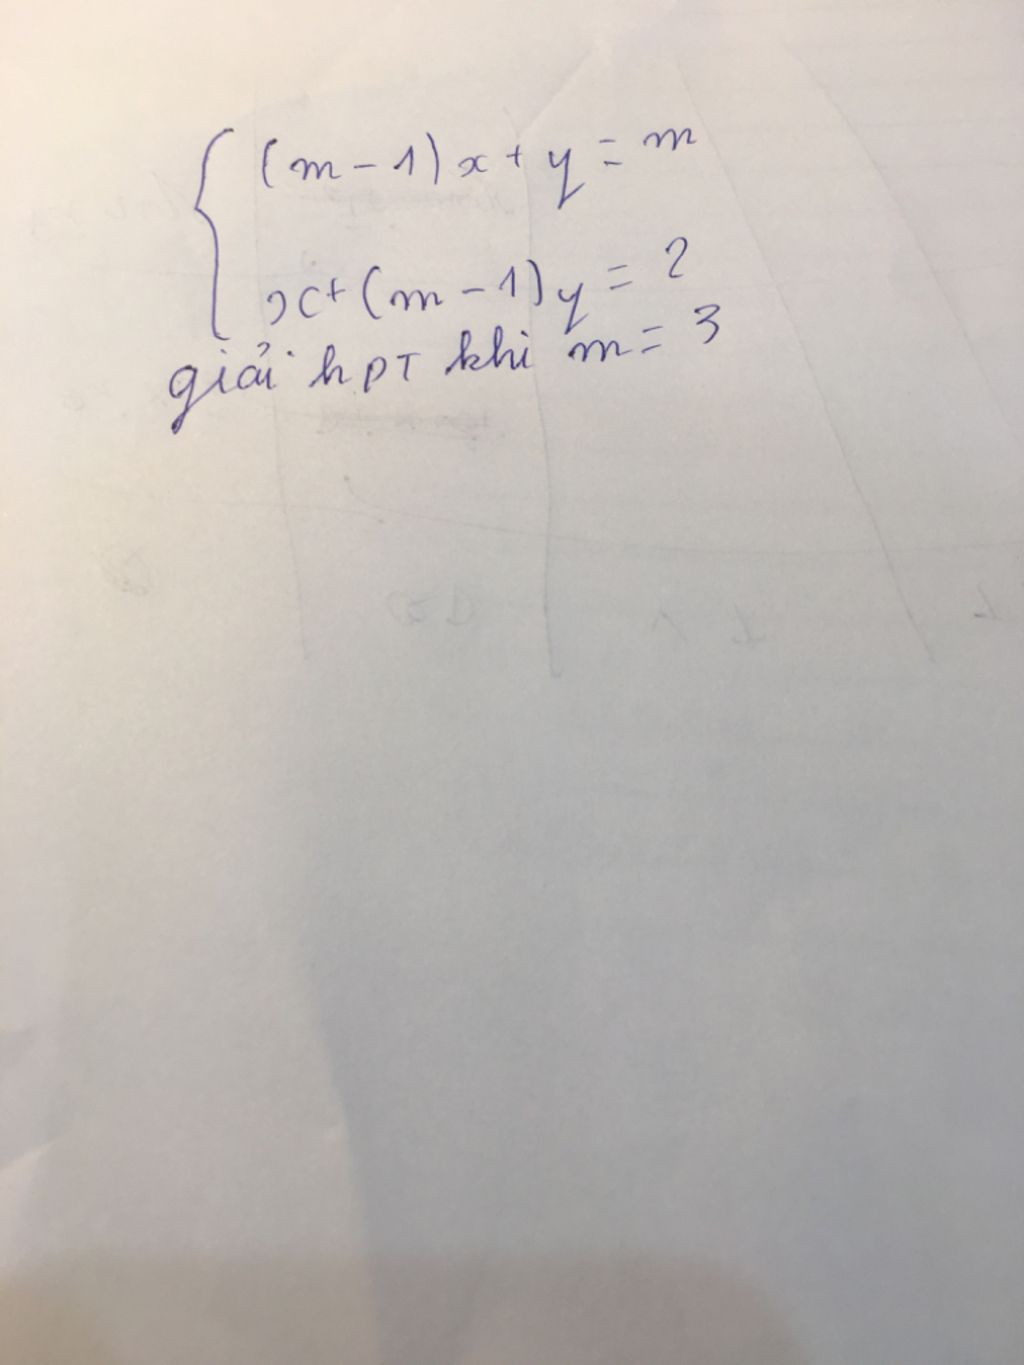 (m-1)x + y = m
x + (m-1)y = 2
giải hPT khi m = 3